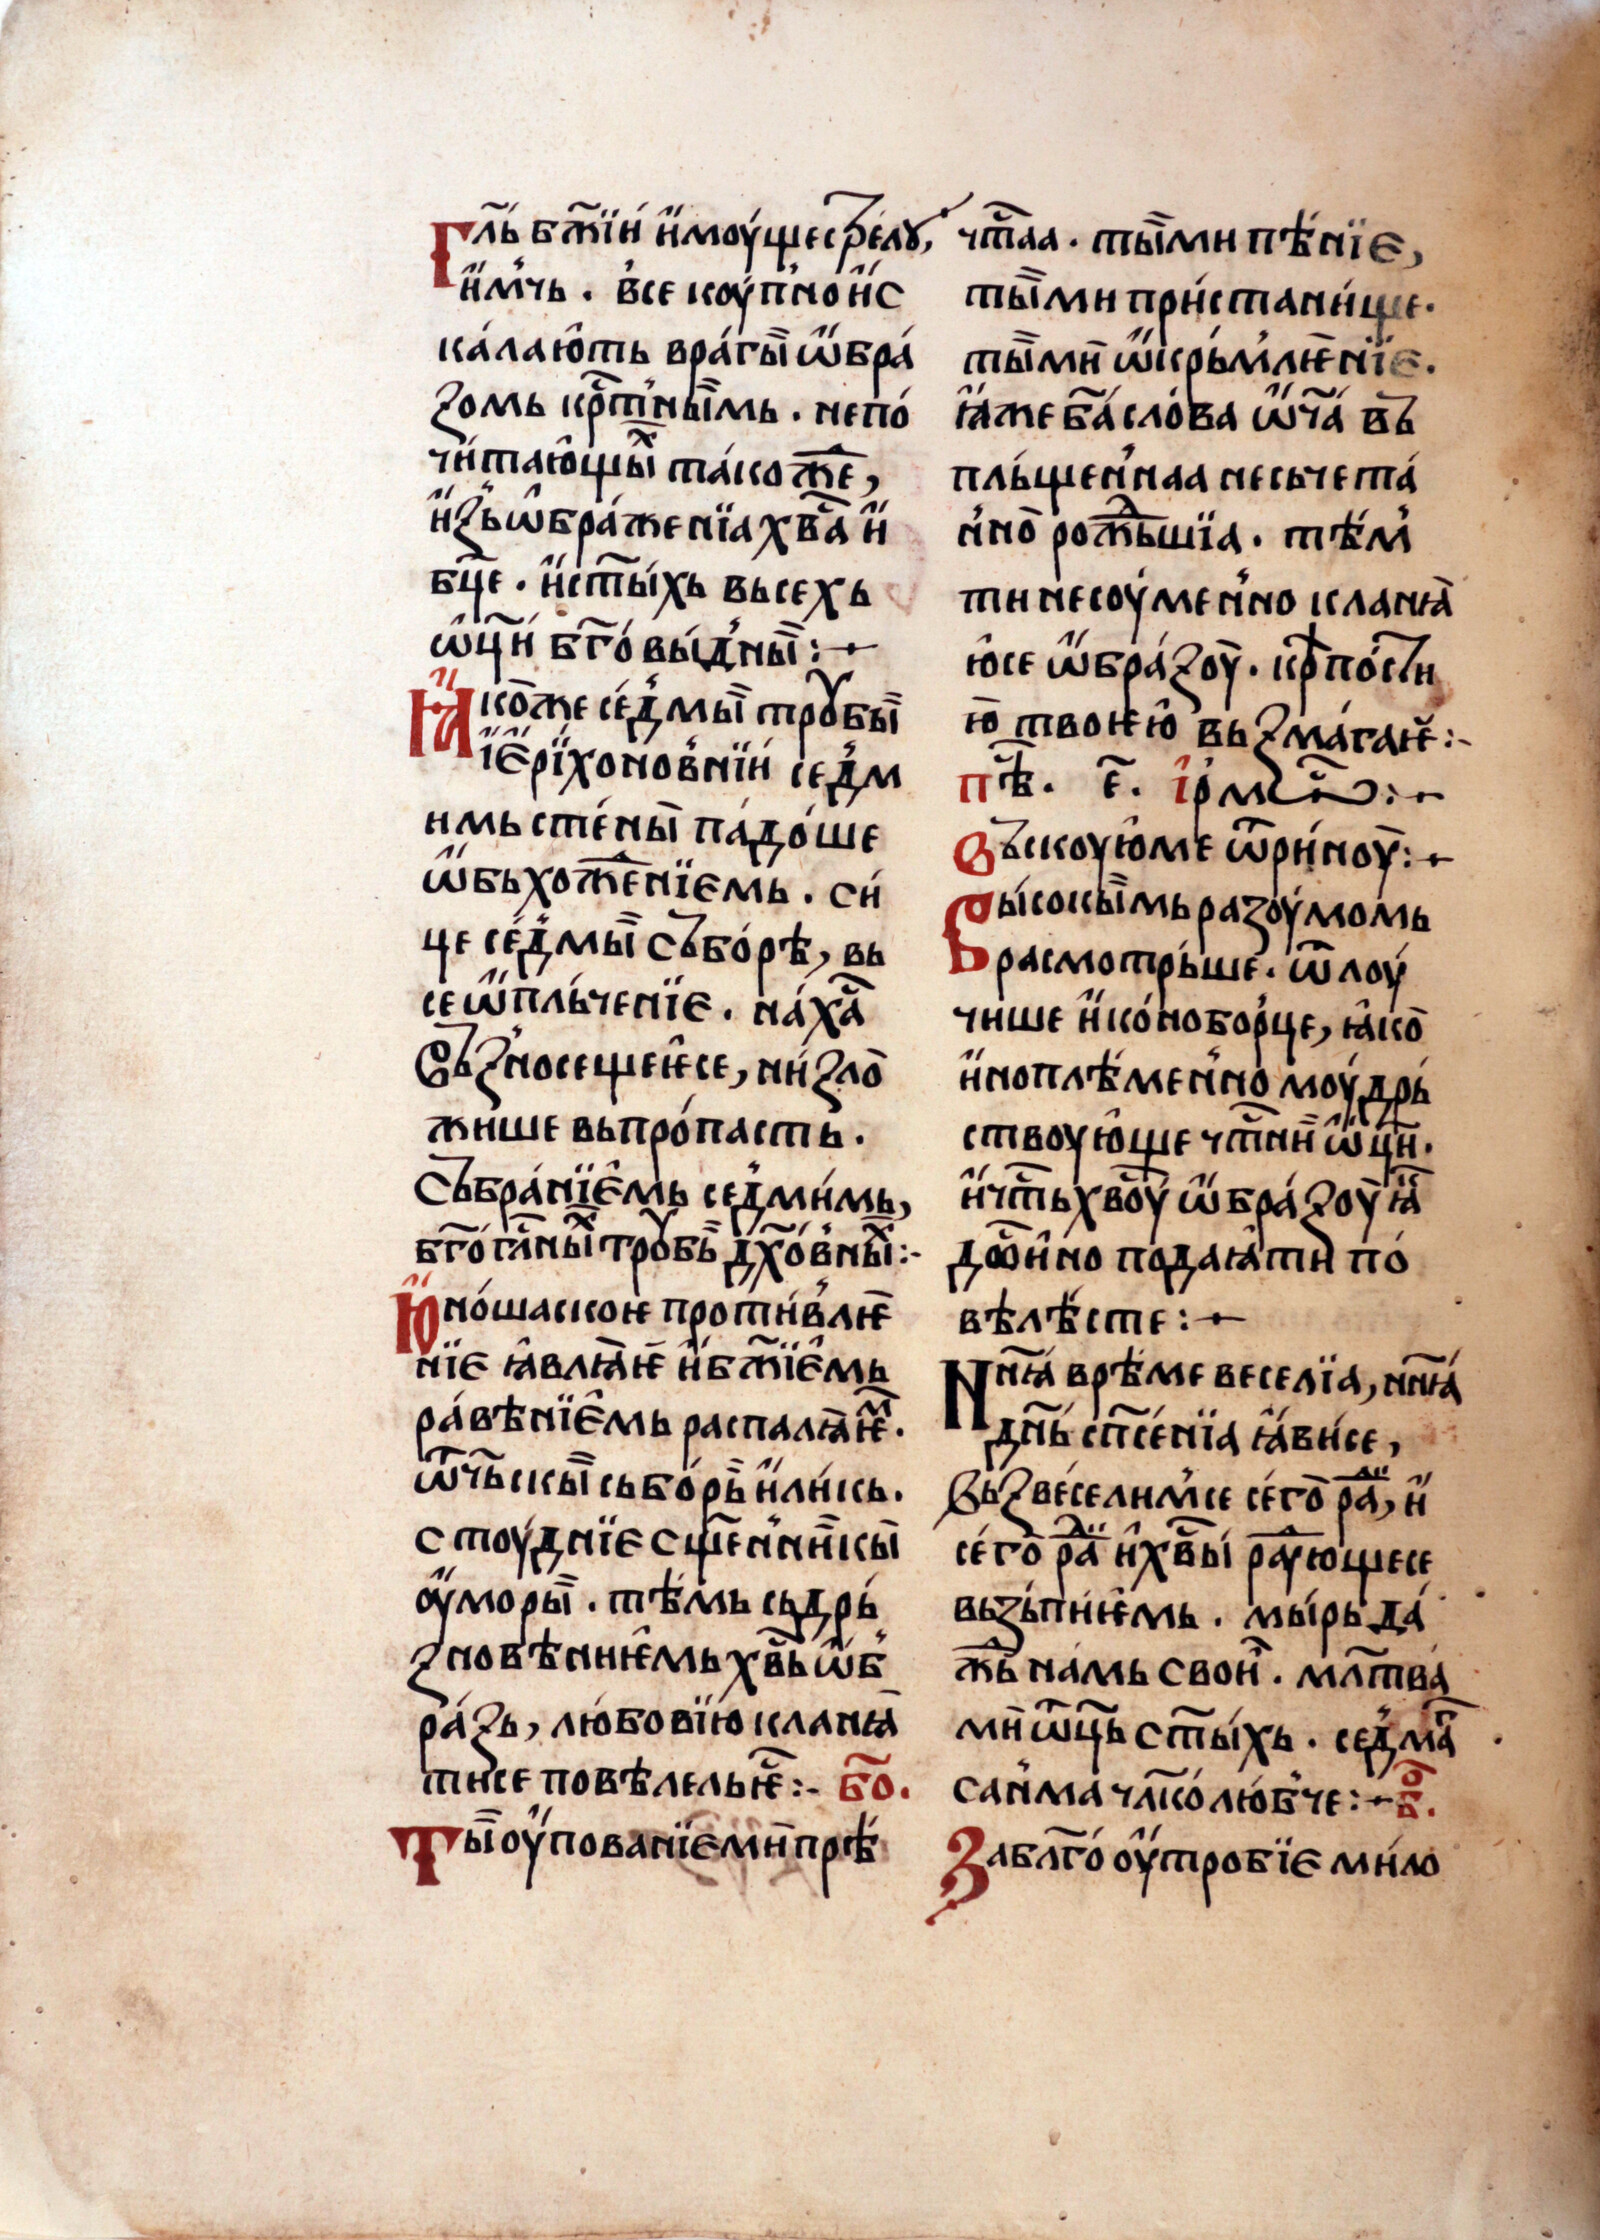 Гл҃ь бж҃їи и҆моу́ще с̾тре́лꙋ,
и҆ м̾чь . в̾се коу́п̾но и҆с
ка́лаю҆ть враги̑ ѡ҆бра́
ꙁомь крⷭ҇т̾ны̏мь . непо́
чи́таю҆щы̏ⷯ та́кож҃е,
и҆ꙁь ѡ҆бра́женїа хв҃а и҆
бц҃е . и҆ ст҃ы́хь вьсехь
ѡ҆ц҃и бг҃о́вы́д̾ны̏ :~
Ꙗ҆ко́же се́д̾мы̏ трꙋбы̏
і҆е҆рїхоно́в̾нїи́ се́д̾м
имь сте́ны̏ па́до́ше
ѡ҆бьхожⷣе́нїемь . си́
це се́д̾мы̏ събо́рѣ, вь
се ѡ҆пль́ченїе . на́ хⷭ҇а
Въꙁ̾носещеѥ҆се, ни́ꙁло̀
жише вь про́пасть .
Събра́нїе҆мь се́д̾ми́мь,
бг҃о́гл҃ны̏ⷯ трꙋбь̀ дх҃о́в̾ны̏ⷯ :~
Ю҆но́шаскоѥ проти́в̾лѥ
нїе ꙗ҆влꙗѥ̀ и҆ бж҃їе҆мь
ра́вѣнїе҆мь распалꙗѥⷨ .
ѡ҆ч҃ьскы̏ сьбо́рь̀ и҆ли́кь .
стоу́днїе сщ҃е́н̾ни̏кы̏
ѹ҆моры̏ . тѣ́мь сьдрь́
ꙁновѣнниѥ҆мь хв҃ь ѡ҆б̾
ра́ꙁь, лю́бовїю кланꙗ̀
тисе повѣлельѥ̀ :~ бо҃.
Ты̏ оу҆пованїе ми̏ прѣ
чⷭ҇таа . ты̏ ми пѣ́нїе,
ты̏ ми при́стани́ще .
ты̏ ми̏ ѡ҆крь́м̾лѥ́нїе .
ꙗ҆же бг҃а́ сло́ва ѿч҃а́ въ
пль́щен̾наа несьчета́
н̾но̀ рожⷣь́шїа . тѣ́м̾
ти несоу́мен̾но кланꙗ̀
ю҆се ѡ҆бра́ꙁоу̀ . крⷭ҇по́сти
ю̀ твоѥю̑ вьꙁмагаѥ̏ :~
пⷭ҇ѣ . е҃ . і҆рмⷭ҇ :~
Въскоую҆ ме ѿри́ноу̀ :~
Высокы̏мь раꙁоу́момь
расмотрь́ше . ѿлоу́
чише и҆ко́нобор̾це, ꙗ҆ко̀
и҆нопле́мен̾но моу́дрь́
ствоую҆ще чⷭ҇тнѝ ѡ҆ц҃и .
и҆ чⷭ҇ть хв҃оу́ ѡ҆бра́ꙁоу̀ ꙗ҆
дⷭ҇ои̑но подаꙗ҆ти по́
вѣлѣ́сте :~
Нн҃ꙗ́ врѣ́ме веселїа, нн҃ꙗ́
дн҃ь сп҃се́нїа ꙗ҆ви́се,
Вьꙁве́селим̾се се́го̀ раⷣ, и҆
се́го̀ раⷣи́ хв҃ы́ раⷣую́щесе
вьꙁьпи́ѥ҆мь . мы́рь да́
жⷣь на́мь сво́и̏ . мл҃тва́
мѝ ѡ҆ц҃ь ст҃ы́хь . се́д̾маⷢ҇
сан̾ма чл҃ко лю́б̾че :~ бⷪ҇.
За бл҃го́оу҆тробїе ми́ло